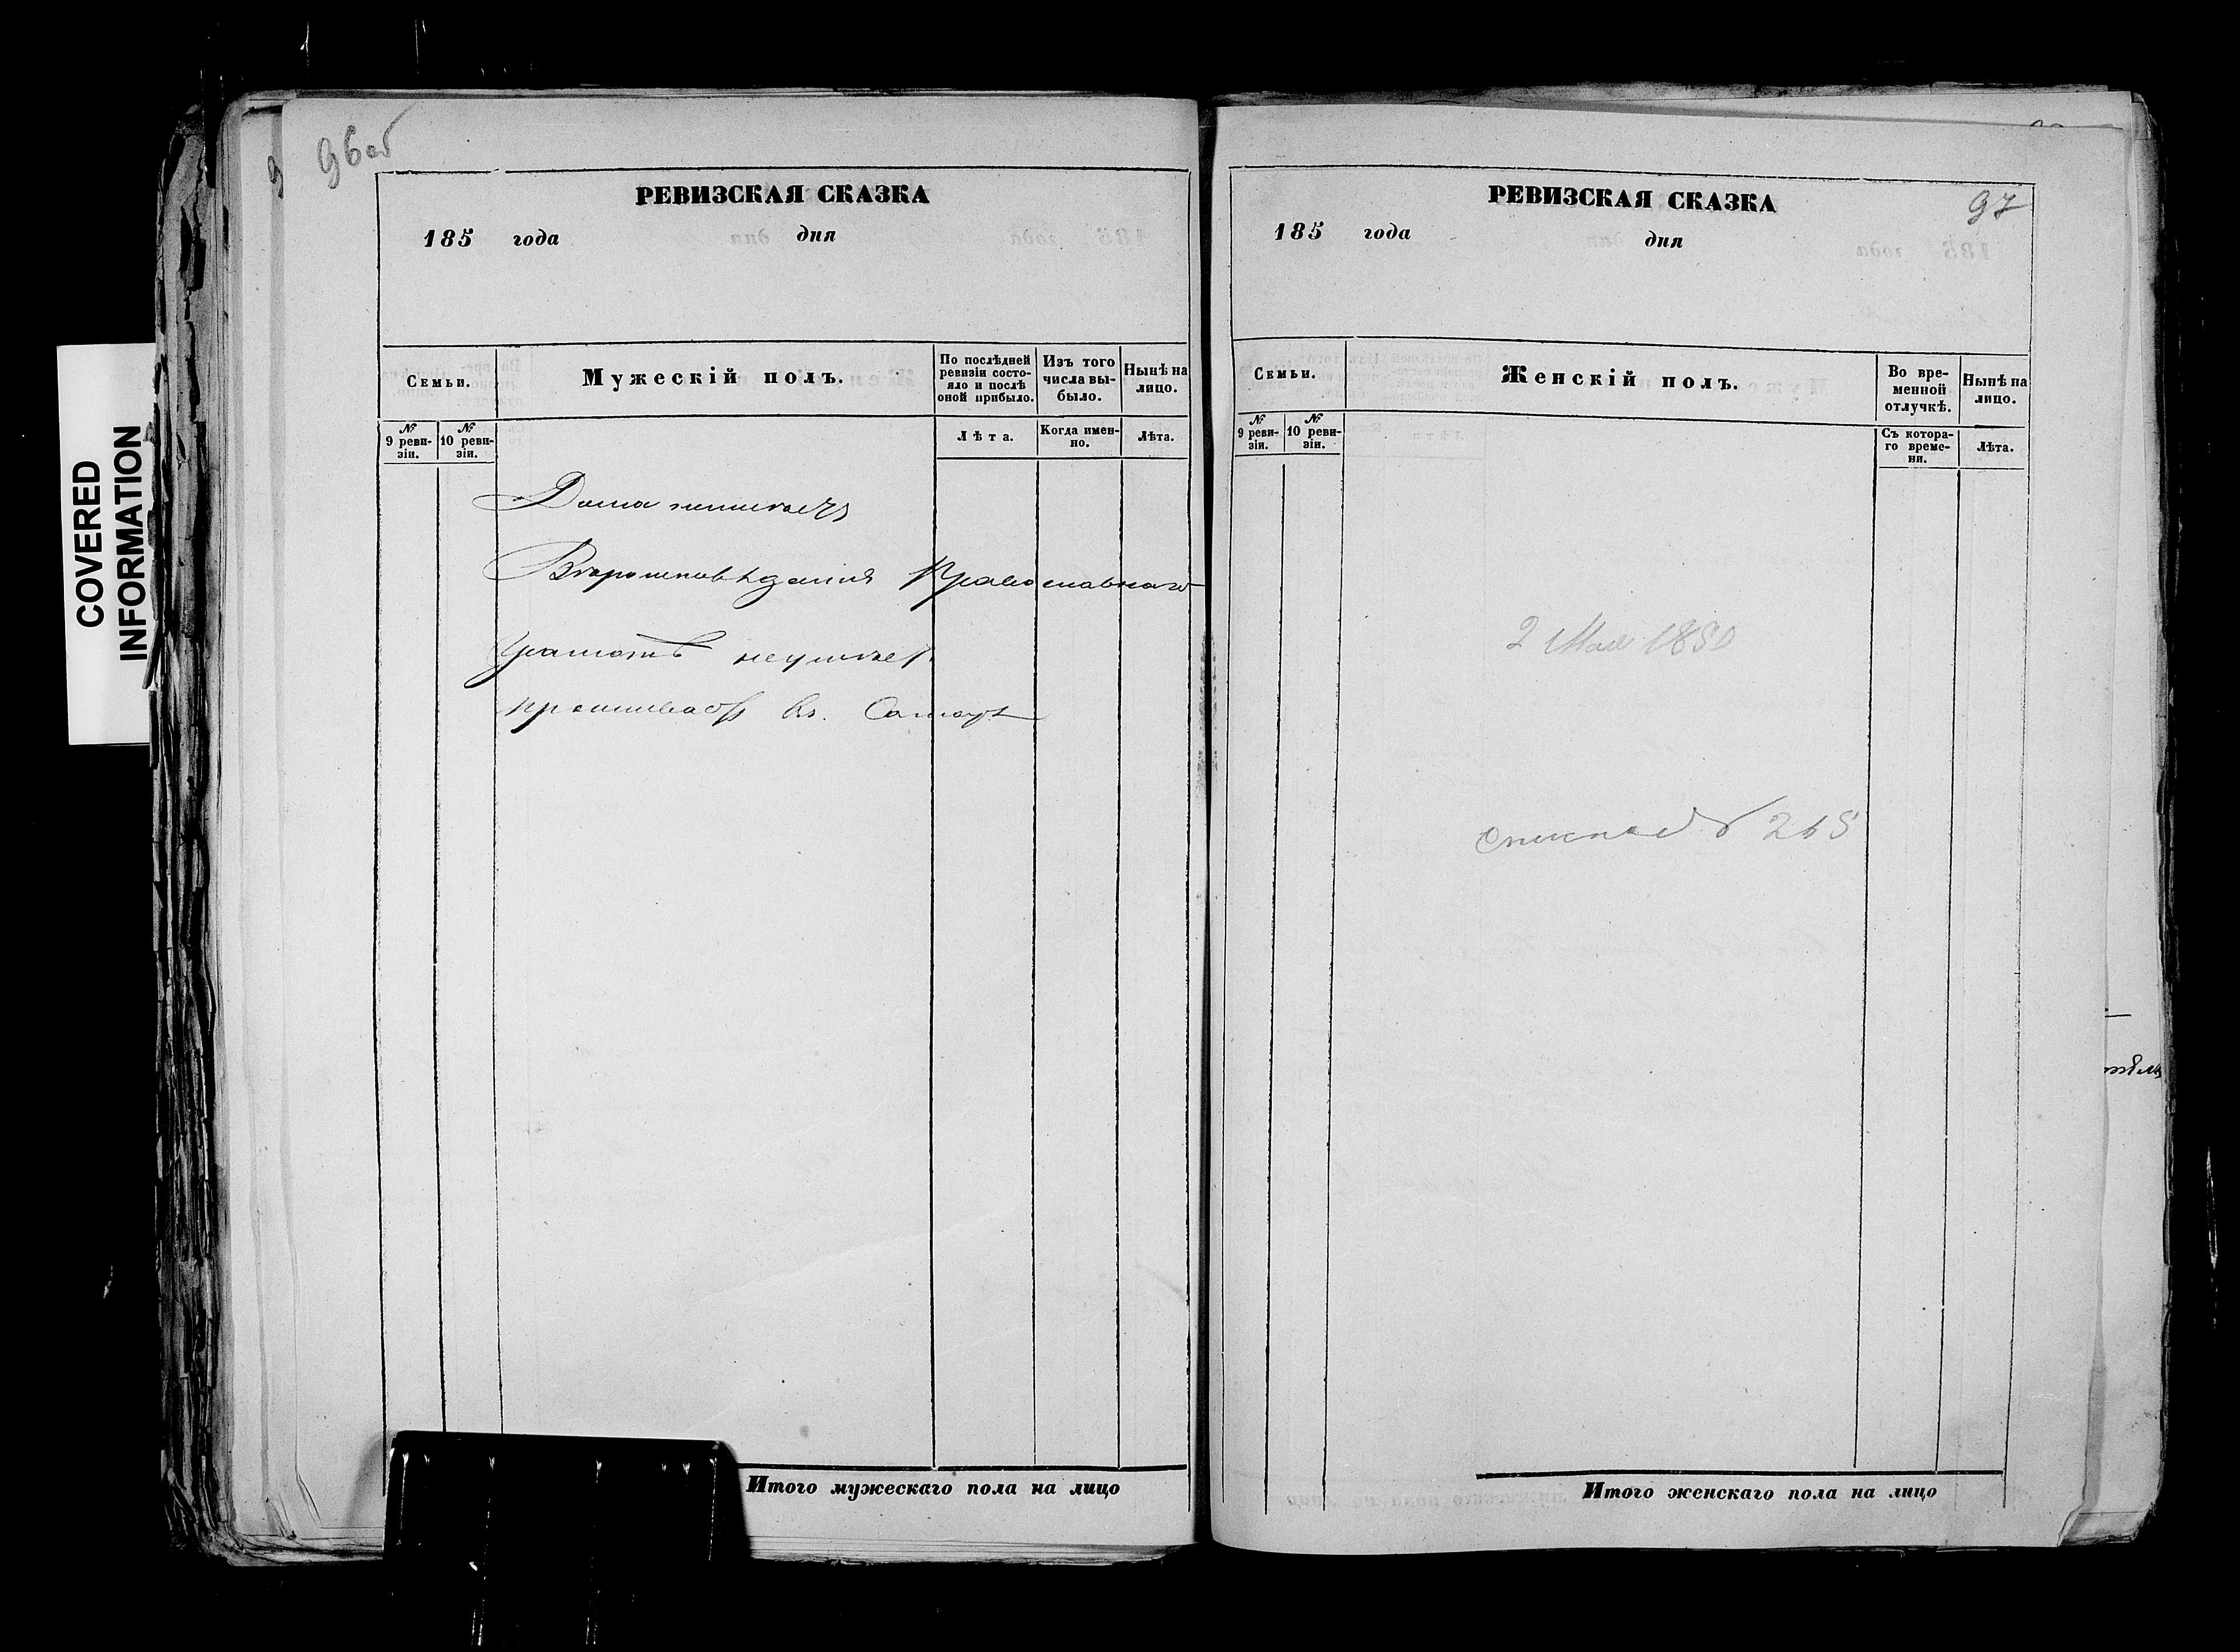 COVERED
INFORMATION
96об
РЕВИЗСКАЯ СКАЗКА
185 года дня
Семьи.
Мужескій полъ.
По послѣдней ревизіи состояло и послѣ оной прибыло.
Изъ того числа выбыло.
Нынѣ на лицо.
№ 9 ревизіи.
№ 10 ревизіи.
Лѣта.
Когда именно.
Лѣта.
Дома неимѣетъ
Вѣроисповѣданія Православнаго
грамотѣ неумѣетъ
проживаетъ въ Самарѣ
Итого мужескаго пола на лицо
97
РЕВИЗСКАЯ СКАЗКА
185 года дня
Семьи.
Женскій полъ.
Во временной отлучкѣ.
Нынѣ на лицо.
№ 9 ревизіи.
№ 10 ревизіи.
Съ котораго времени.
Лѣта.
2 Мая 1850
265
Итого женскаго пола на лицо